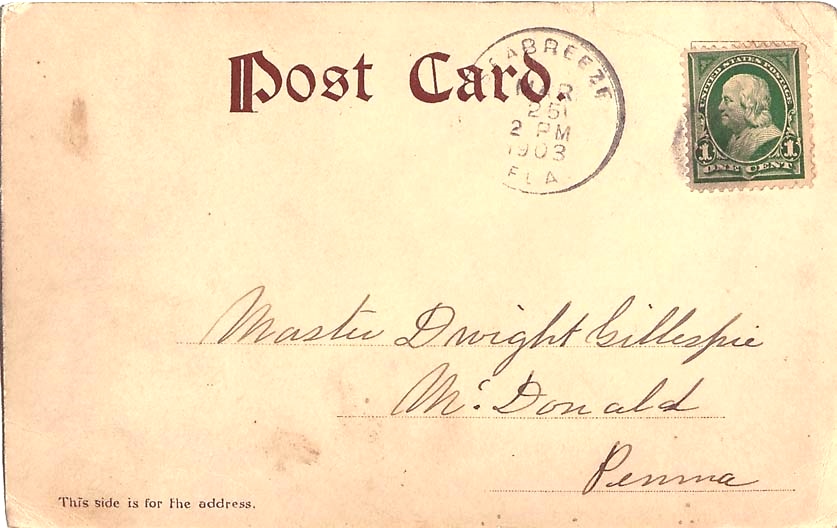 Post Card.
SEABREEZE
MAR
25
2 PM
1903
FLA.
UNITED STATES POSTAGE
1 1
ONE CENT
Master Dwight Gillespie
Mc. Donald
Penna
This side is for the address.